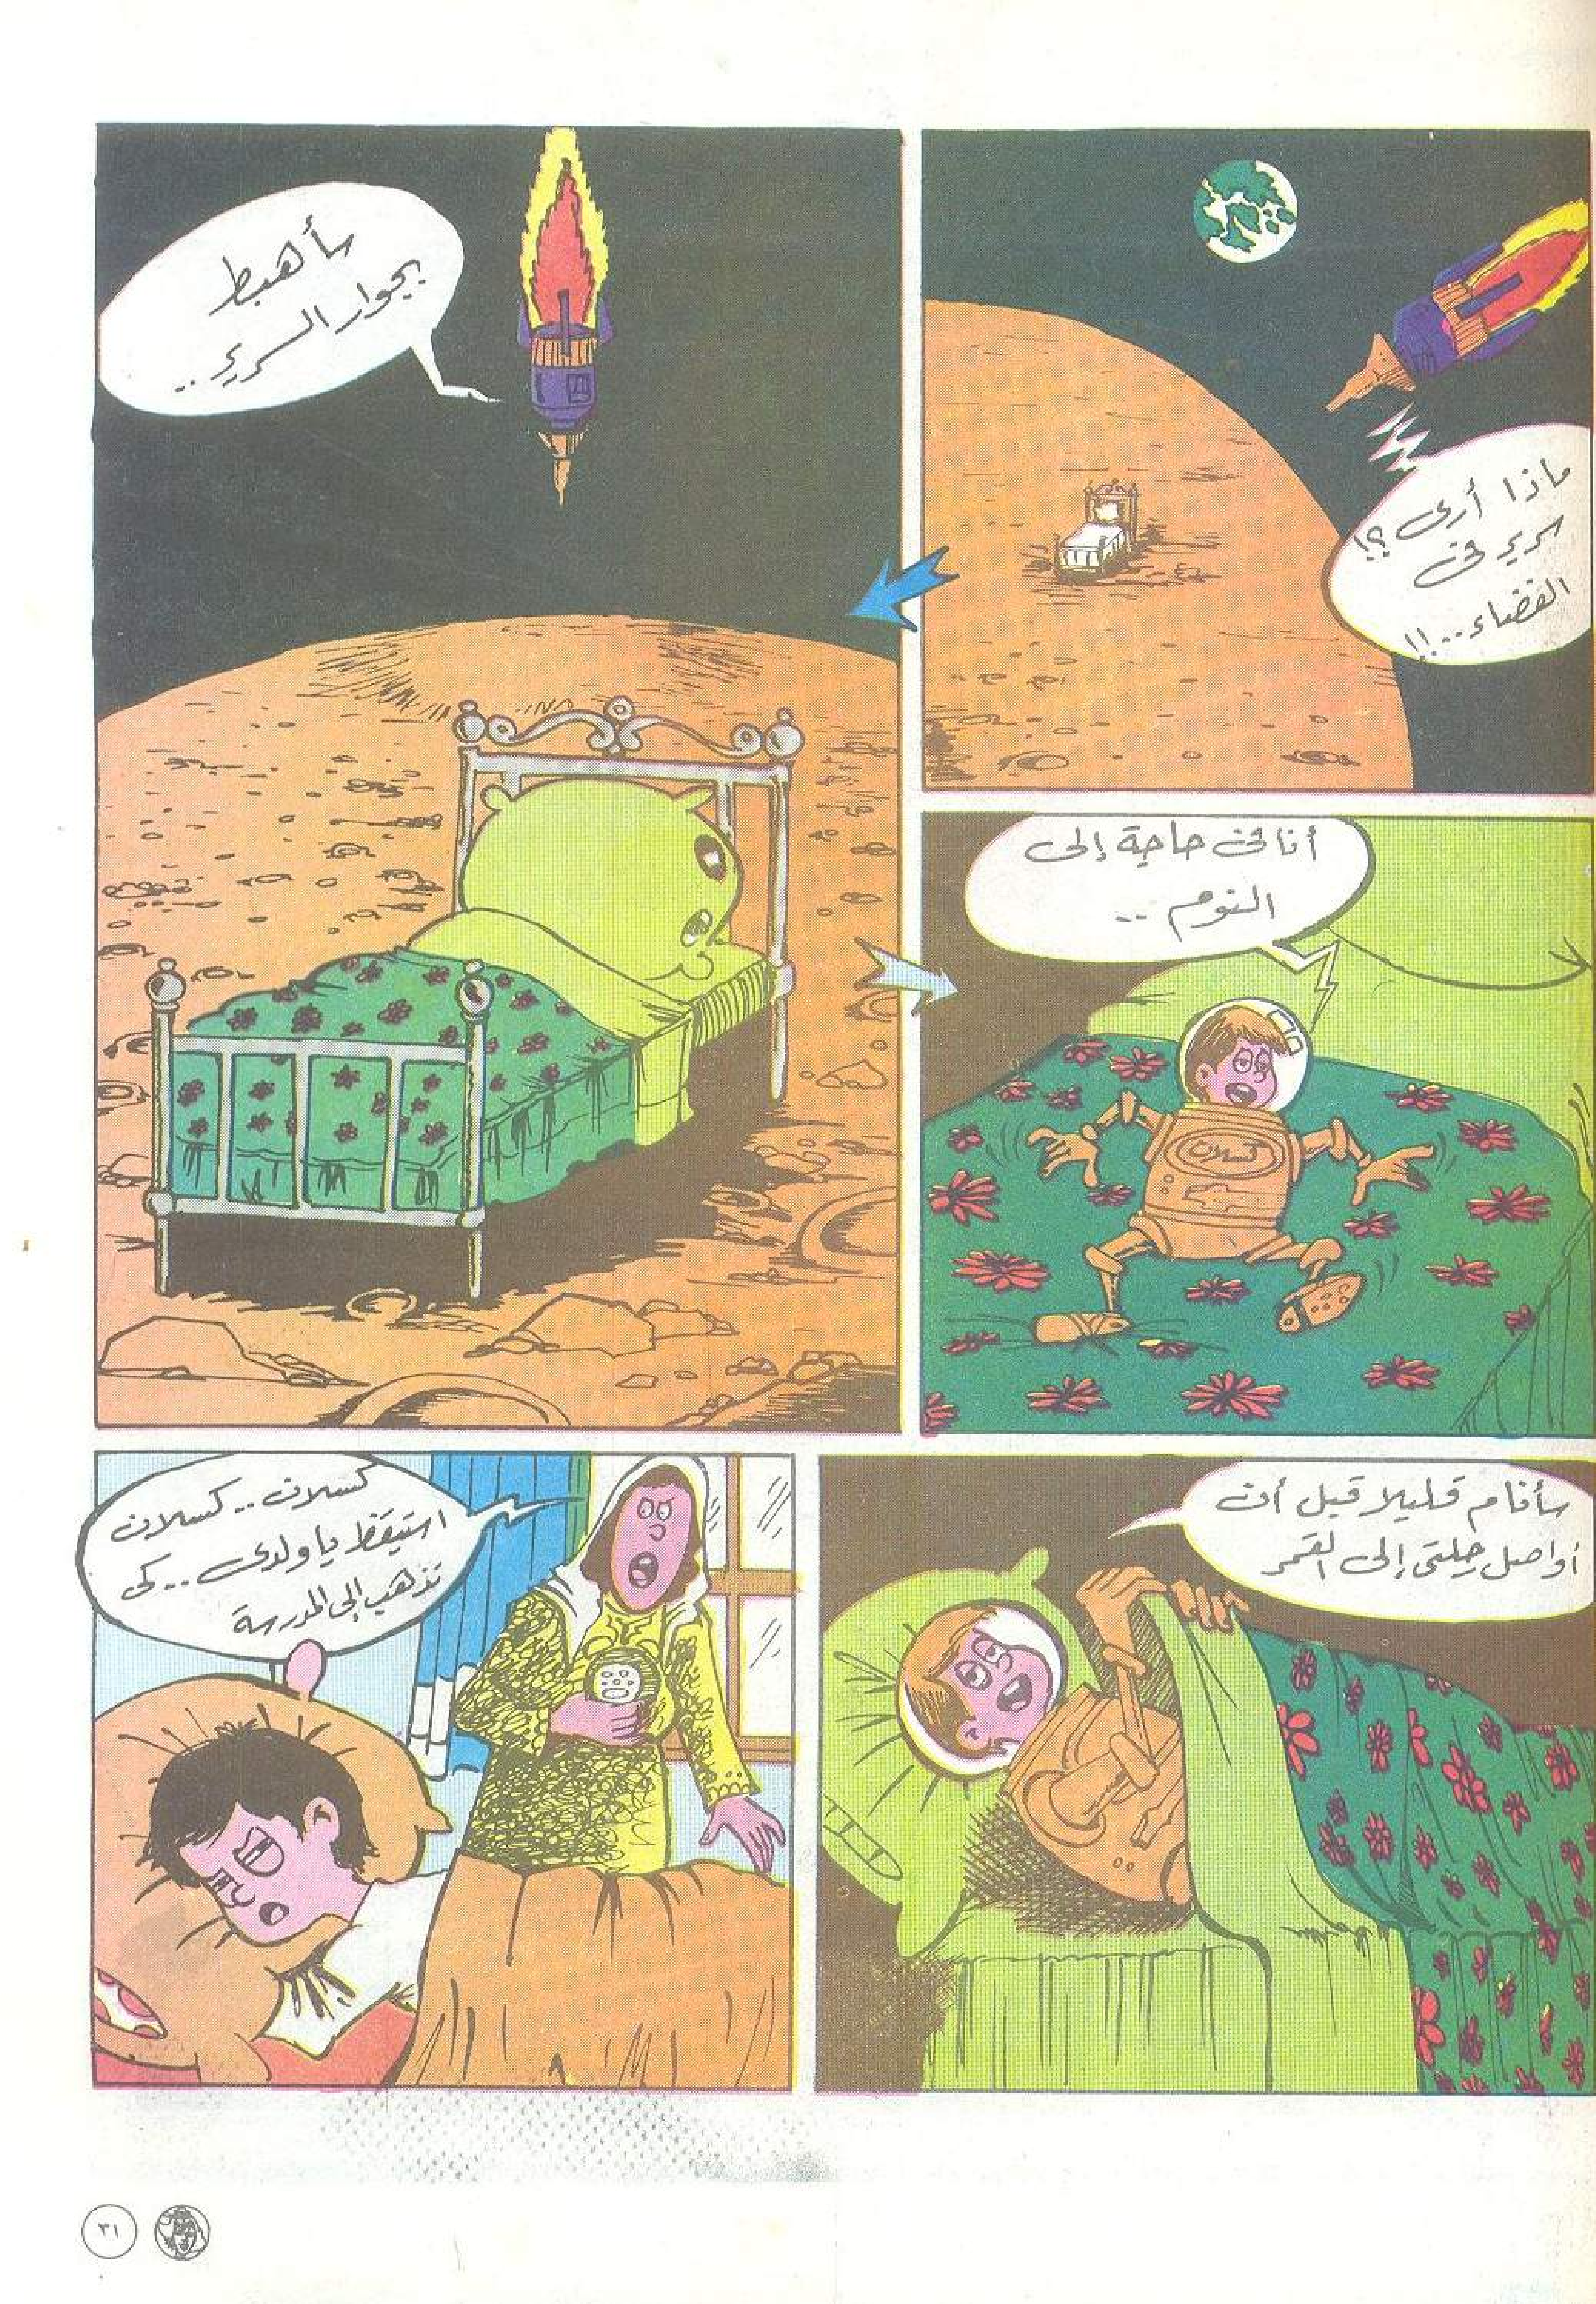 ماذا أرى ؟!
سرير فى
الفضاء..!!
سأهبط
بجوار السرير..
أنا فى حاجة إلى
النوم ..
كسلان
سأنام قليلا قبل أن
أواصل رحلتى إلى القمر
كسلان .. كسلان
استيقظ يا ولدى .. كى
تذهب إلى المدرسة
٣١